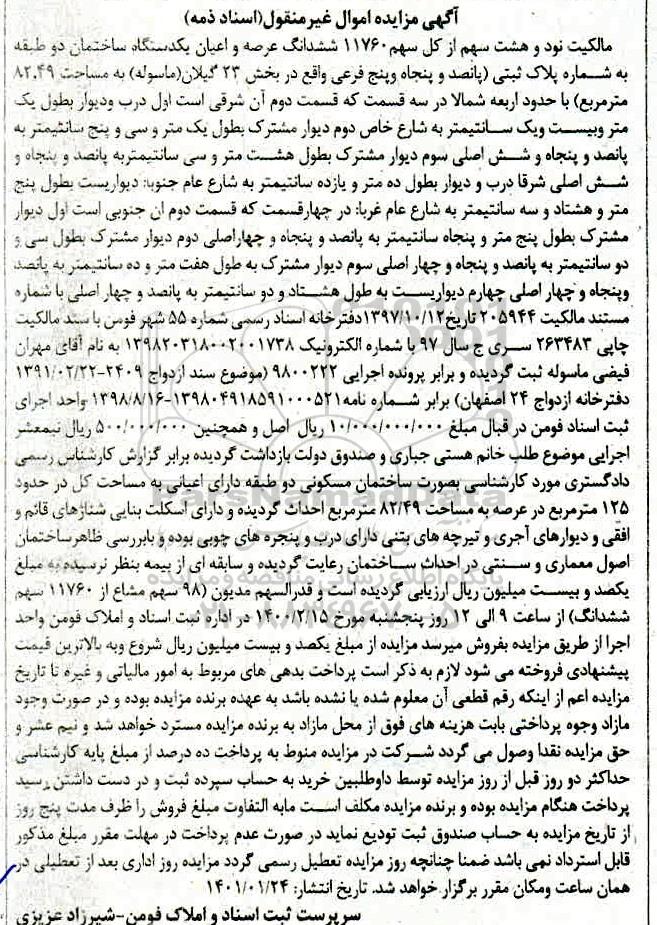 آگهی مزایده اموال غیرمنقول(اسناد ذمه)
مالکیت نود و هشت سهم از کل سهم۱۱۷۶۰ ششدانگ عرصه و اعیان یکدستگاه ساختمان دو طبقه
به شماره پلاک ثبتی (پانصد و پنجاه وپنج فرعی واقع در بخش ۲۳ گیلان(ماسوله) به مساحت ۸۲.۴۹
مترمربع) با حدود اربعه شمالا در سه قسمت که قسمت دوم آن شرقی است اول درب ودیوار بطول یک
متر وبیست ویک سانتیمتر به شارع خاص دوم دیوار مشترک بطول یک متر و سی و پنج سانتیمتر به
پانصد و پنجاه و شش اصلی سوم دیوار مشترک بطول هشت متر و سی سانتیمتربه پانصد و پنجاه و
شش اصلی شرقا درب و دیوار بطول ده متر و یازده سانتیمتر به شارع عام جنوبا: دیواریست بطول پنج
متر و هشتاد و سه سانتیمتر به شارع عام غربا: در چهارقسمت که قسمت دوم ان جنوبی است اول دیوار
مشترک بطول پنج متر و پنجاه سانتیمتر به پانصد و پنجاه و چهاراصلی دوم دیوار مشترک بطول سی و
دو سانتیمتر به پانصد و پنجاه و چهار اصلی سوم دیوار مشترک به طول هفت متر و ده سانتیمتر به پانصد
وپنجاه و چهار اصلی چهارم دیواریست به طول هشتاد و دو سانتیمتر به پانصد و چهار اصلی با شماره
مستند مالکیت ۲۰۵۹۴۴ تاریخ۱۳۹۷/۱۰/۱۲دفترخانه اسناد رسمی شماره ۵۵ شهر فومن با سند مالکیت
چاپی ۲۶۳۴۸۳ سری ج سال ۹۷ با شماره الکترونیک ۱۳۹۸۲۰۳۱۸۰۰۲۰۰۱۷۳۸ به نام آقای مهران
فیضی ماسوله ثبت گردیده و برابر پرونده اجرایی ۹۸۰۰۲۲۲ (موضوع سند ازدواج ۲۴۰۹-۱۳۹۱/۰۲/۲۲
دفترخانه ازدواج ۲۴ اصفهان) برابر شماره نامه۱۳۹۸۰۴۹۱۸۵۹۱۰۰۰۵۲۱-۱۳۹۸/۸/۱۶ واحد اجرای
ثبت اسناد فومن در قبال مبلغ ۱۰/۰۰۰/۰۰۰/۰۰۰ ریال اصل و همچنین ۵۰۰/۰۰۰/۰۰۰ ریال نیمعشر
اجرایی موضوع طلب خانم هستی جباری و صندوق دولت بازداشت گردیده برابر گزارش کارشناس رسمی
دادگستری مورد کارشناسی بصورت ساختمان مسکونی دو طبقه دارای اعیانی به مساحت کل در حدود
۱۲۵ مترمربع در عرصه به مساحت ۸۲/۴۹ مترمربع احداث گردیده و دارای اسکلت بنایی شناژهای قائم و
افقی و دیوارهای آجری و تیرچه های بتنی دارای درب و پنجره های چوبی بوده و بابررسی ظاهرساختمان
اصول معماری و سنتی در احداث ساختمان رعایت گردیده و سابقه ای از بیمه بنظر نرسیده به مبلغ
یکصد و بیست میلیون ریال ارزیابی گردیده است و قدرالسهم مدیون (۹۸ سهم مشاع از ۱۱۷۶۰ سهم
ششدانگ) از ساعت ۹ الی ۱۲ روز پنجشنبه مورخ ۱۴۰۰/۲/۱۵ در اداره ثبت اسناد و املاک فومن واحد
اجرا از طریق مزایده بفروش میرسد مزایده از مبلغ یکصد و بیست میلیون ریال شروع وبه بالاترین قیمت
پیشنهادی فروخته می شود لازم به ذکر است پرداخت بدهی های مربوط به امور مالیاتی و غیره تا تاریخ
مزایده اعم از اینکه رقم قطعی آن معلوم شده یا نشده باشد به عهده برنده مزایده بوده و در صورت وجود
مازاد وجوه پرداختی بابت هزینه های فوق از محل مازاد به برنده مزایده مسترد خواهد شد و نیم عشر و
حق مزایده نقدا وصول می گردد شرکت در مزایده منوط به پرداخت ده درصد از مبلغ پایه کارشناسی
حداکثر دو روز قبل از روز مزایده توسط داوطلبین خرید به حساب سپرده ثبت و در دست داشتن رسید
پرداخت هنگام مزایده بوده و برنده مزایده مکلف است مابه التفاوت مبلغ فروش را ظرف مدت پنج روز
از تاریخ مزایده به حساب صندوق ثبت تودیع نماید در صورت عدم پرداخت در مهلت مقرر مبلغ مذکور
قابل استرداد نمی باشد ضمنا چنانچه روز مزایده تعطیل رسمی گردد مزایده روز اداری بعد از تعطیلی در
همان ساعت ومکان مقرر برگزار خواهد شد. تاریخ انتشار: ۱۴۰۱/۰۱/۲۴
سرپرست ثبت اسناد و املاک فومن-شیرزاد عزیزی
ParsNamadData
پایگاه اطلاع رسانی مناقصه و مزایده